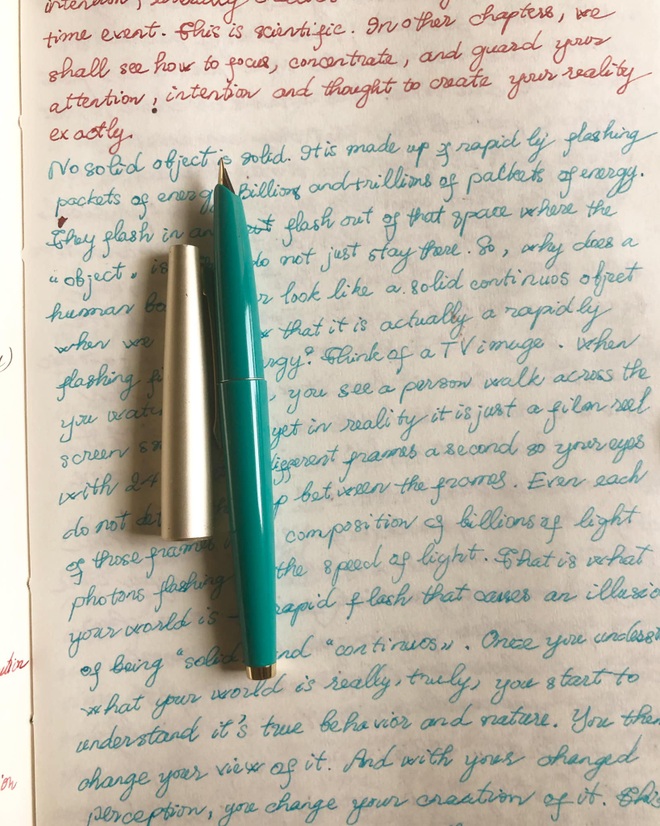 time event. This is scientific. In other chapters, we
shall see how to focus, concentrate, and guard your
attention, intention and thought to create your reality
exactly.
No solid object is solid. It is made up of rapidly flashing
packets of energy. Billions and trillions of packets of energy.
They flash in and out flash out of that space where the
"object" is do not just stay there. So, why does a
human look like a solid continuos object
when we that it is actually a rapidly
flashing Think of a TV image. When
you you see a person walk across the
screen yet in reality it is just a film reel
with 24 different frames a second so your eyes
do not between the frames. Even each
of those frames composition of billions of light
photons flashing the speed of light. That is what
your world is - rapid flash that causes an
of being "solid and "continuos". Once you
what your world is really, truly, you start to
understand it's true behavior and nature. You then
change your view of it. And with your changed
perception, you change your creation of it.